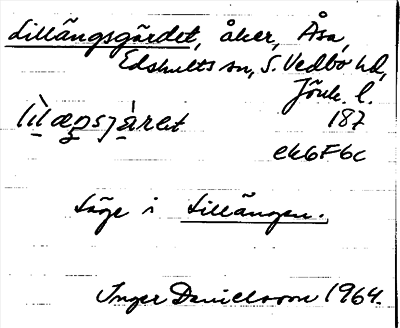 Lillängsgärdet, åker, Åsa,
Edshults sn, S. Vedbo hd,
Jönk. l.
187
ek6F6c
Låge i Lillängen.
Inger Danielsson 1964.